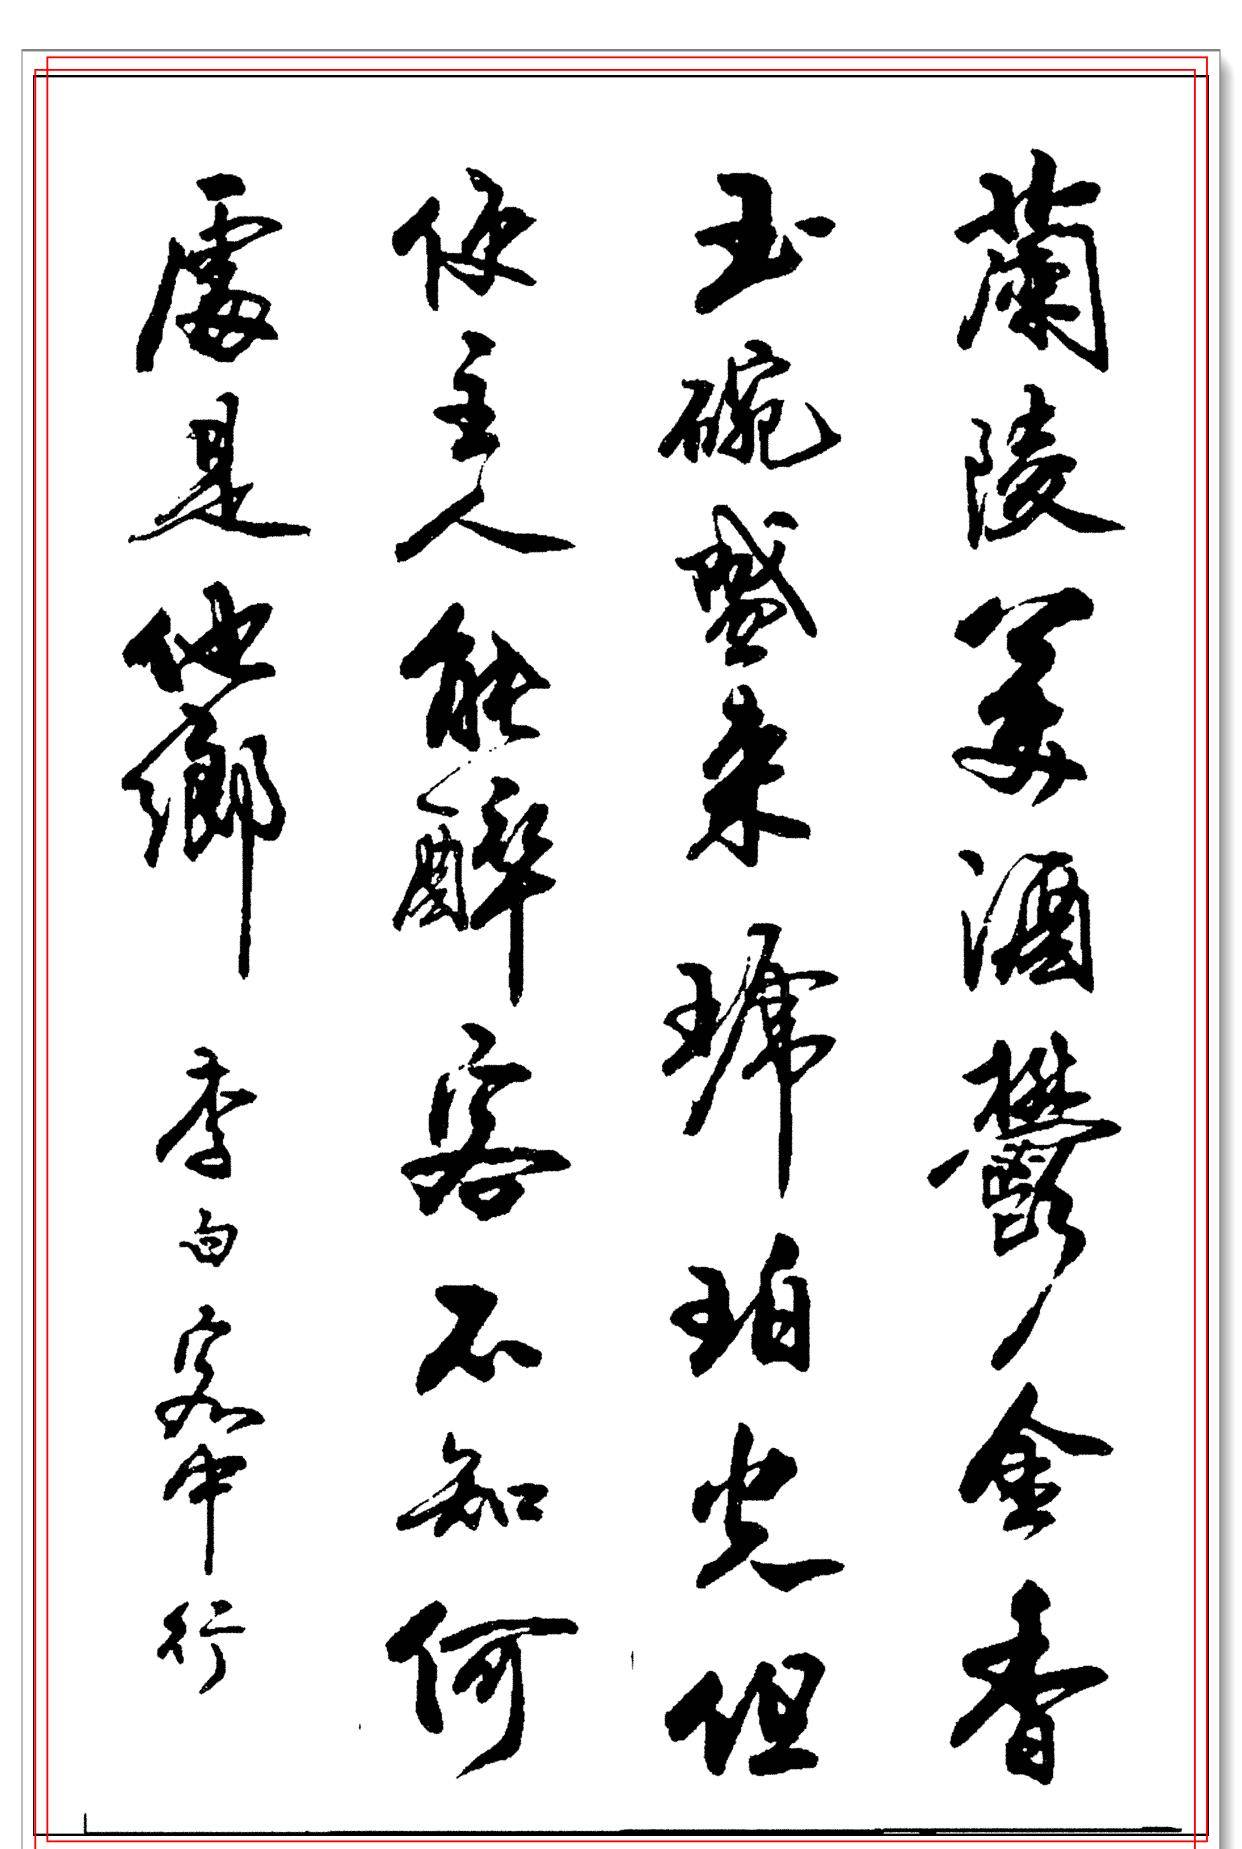 蘭陵美酒鬱金香
玉碗盛來琥珀光但
使主人能醉客不知何
處是他鄉 李白客中行